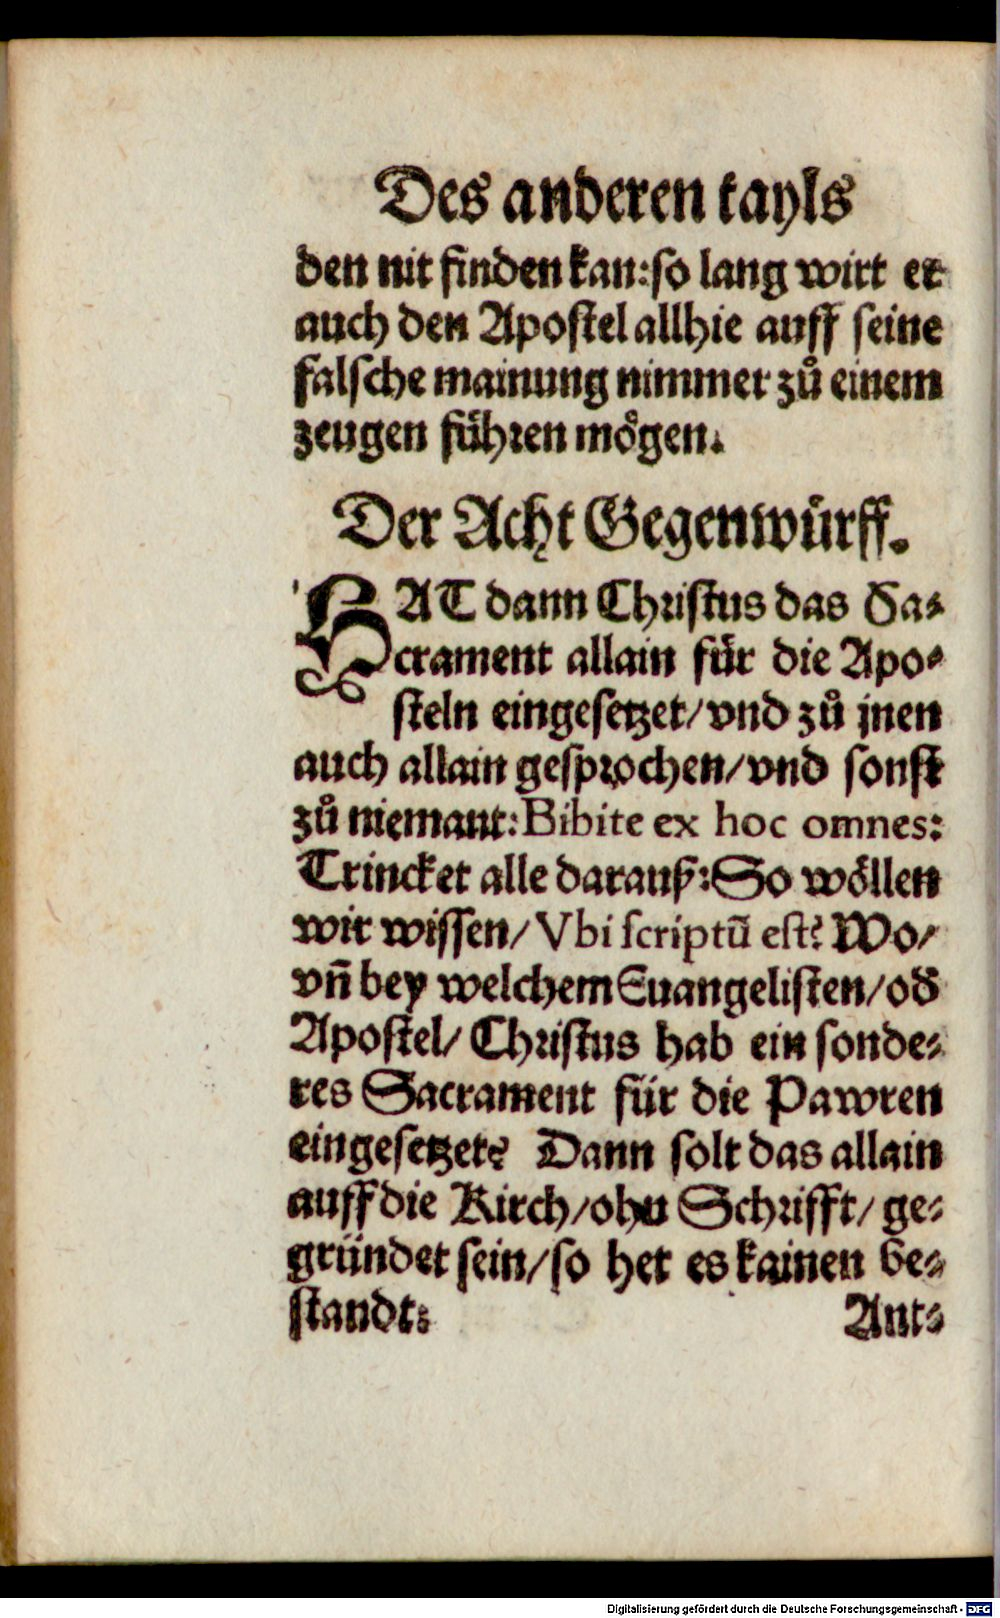 Des anderen tayls
den nit finden kan: so lang wirt er
auch den Apostel allhie auff seine
falsche mainung nimmer zů einem
zeugen fůhren mögen.
Der Acht Gegenwürff.
HAT dann Christus das Sa-
crament allain für die Apo-
steln eingesetzet/ vnd zů jnen
auch allain gesprochen/ vnd sonst
zů niemant: Bibite ex hoc omnes:
Trincket alle darauß: So wöllen
wir wissen/ Vbi scriptū est? Wo/
vn̄ bey welchem Euangelisten/ od̄
Apostel/ Christus hab ein sonde-
res Sacrament für die Pawren
eingesetzet? Dann solt das allain
auff die Kirch/ ohn Schrifft/ ge-
gründet sein/ so het es kainen be-
standt:
Ant-
Digitalisierung gefördert durch die Deutsche Forschungsgemeinschaft - DFG